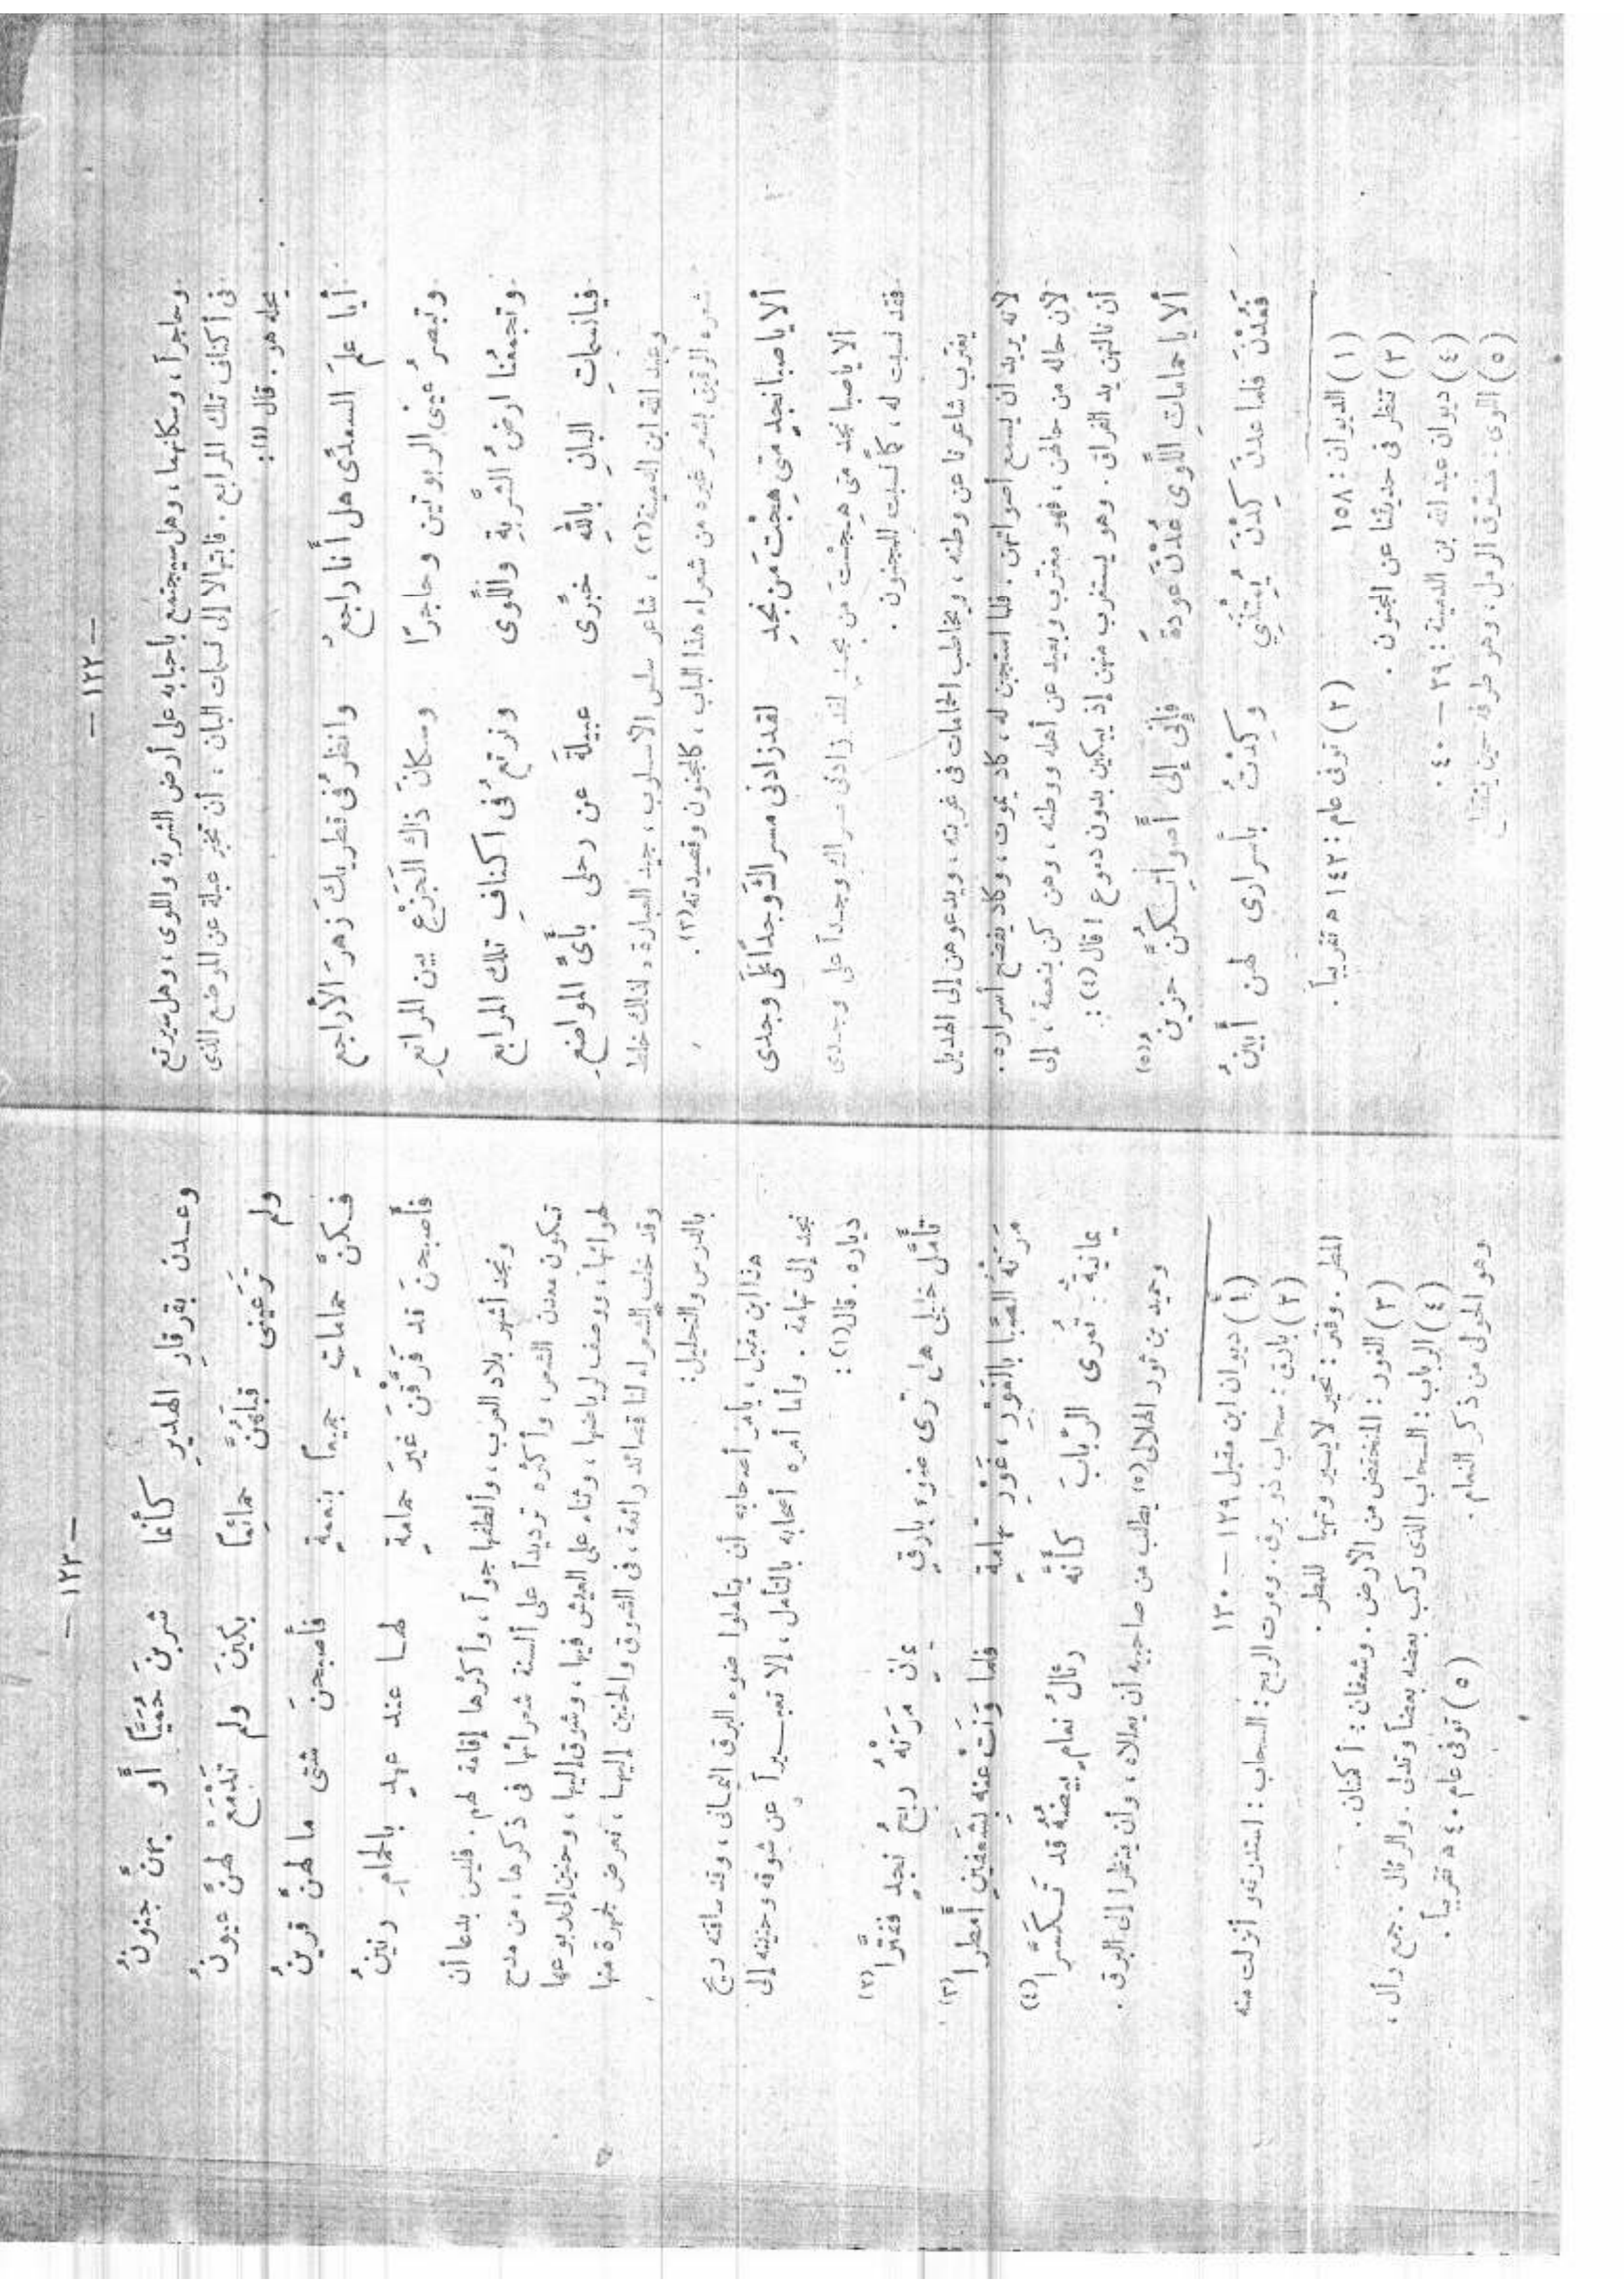 — ١٢٢ —
وحاجراً، وسكانها، وهل سيجتمع بأحبابه على أرض الشربة واللوى، وهل سيرتع
فى أكناف تلك المرابع. فابتهالا إلى نسمات البان، أن تخبر عبلة عن الموضع الذى
يحله هو. قال (١):
أيا علمَ السعدى هل أنا راجعُ    وانظرُ فى قطريك زهرَ الأراجعِ
وتبصرُ عينى الربوتين وحاجرًا    وسكانَ ذاك الجَزْعِ بين المراتعِ
وتجمعُنا ارضُ الشَّربةِ واللَّوى    ونرتعُ فى اكنافِ تلك المرابعِ
فيانسماتِ البانِ باللهِ خبِّرى    عبيلةَ عن رحلى بأىِّ المواضعِ
وعبد الله ابن الدمينة (٢)، شاعر سلس الأسلوب، جيد العبارة، لذلك خلط
شعره الرقيق بشعر غيره من شعراء هذا الباب، كالمجنون وقصيدته (٣).
ألا ياصبا نجدٍ متى هِجْتَ مَن نجدِ    لقد زادنى مسراكَ وجداً عَلَى وجدى
ألا ياصبا نجد متى هيجت من نجد    لقد زادنى مسراك وجداً على وجدى
فقد نسبت له، كما نسبت للمجنون.
يغترب شاعرنا عن وطنه، ويخاطب الحمامات فى غربته، ويدعوهن إلى الهديل
لأنه يريد أن يسمع أصواتهن. فلما استجبن له، كاد يموت، وكاد يفضح أسراره.
لأن حاله من حالهن، فهو مغترب وبعيد عن أهله ووطنه، وهن كن بنعمة، إلى
أن نالتهن يد الفراق. وهو يستغرب منهن إذ يبكين بدون دموع! قال (٤):
ألا يا حماماتِ اللَّوى عُدْنَ عودةً    فإنى إلى أصواتِكنَّ حزينُ (٥)
فَعُدْنَ فلما عدنَ كِدْنَ يُمِتْنَنِي    وكِدتُ بأسرارى لهن أُبينُ
(١) الديوان: ١٥٨    (٢) توفى عام: ١٤٢ ه تقريباً.
(٣) تنظر فى حديثنا عن المجنون.
(٤) ديوان عبد الله بن الدمينة: ٣٩ — ٤٠.
(٥) اللوى: مسترق الرمل، وهو طرفه حين ينقطع
— ١٢٣ —
وعدن بقرقارِ الهديرِ كأنما    شربنَ حُمَيَّا أو بهنَّ جنونُ
ولم تَرَعينى قبلَهُنَّ حمائماً    بكينَ ولم تَدْمَعْ لهنَّ عيونُ
فكنَّ حماماتٍ جميعاً بنعمةٍ    فأصبحنَ شتى ما لهنَّ قرينُ
فأصبحنَ قد فرَّقْنَ غيرَ حمامةٍ    لها عند عهدٍ بالحمامِ رنينُ
ونجد أشهر بلاد العرب، وألطفها جواً، وأكثرها إقامة لهم. فليس بدعا أن
تكون معدن الشعر، وأكثره ترديداً على ألسنة شعرائها فى ذكرها، من مدح
لهوائها، ووصف لرياضها، وثناء على العيش فيها، وشوق إليها، وحنين إلى ربوعها
وقد خلف الشعراء لنا قصائد رائعة، فى الشوق والحنين إليها، نعرض لجمهرة منها
بالدرس والتحليل:
هذا ابن مقبل، يأمر أصحابه أن يتأملوا ضوء البرق اليمانى، وقد ساقته ريح
نجد إلى تهامة. وأما أمره أصحابه بالتأمل، إلا تعبيراً عن شوقه وحنينه إلى
دياره. قال (١):
تأمَّل خليلى هل ترى ضوءَ بارقٍ    يمانٍ مَرَتْهُ ريحُ نجدٍ ففترَّا (٢)
مَرَتْهُ الصَّبا بالغَوْرِ، غَوْرِ تهامةٍ    فلما وَنَتْ عنه بشَعفَينِ أمطرا (٣)
يمانيةٌ تُمرى الرّبابَ كأنَّه    رئالُ نعامٍ بيضُهُ قد تَكسَّرا (٤)
وحميد بن ثور الهلالى (٥) يطلب من صاحبيه أن يعللاه، وأن ينظرا إلى البرق.
(١) ديوان ابن مقبل ١٢٩ — ١٣٠
(٢) بارق: سحاب ذو برق. ومرت الريح: السحاب: استدرته وأنزلت منه
المطر. وفتر: تحير لا يسير وتهيأ للمطر.
(٣) الغور: المنخفض من الأرض. وشعفان: أكمتان.
(٤) الرباب: السحاب الذى ركب بعضه بعضاً وتدلى. والرئال. جمع رأل،
وهو الحولى من ذكر النعام.    (٥) توفى عام ٤٠ ه تقريباً.